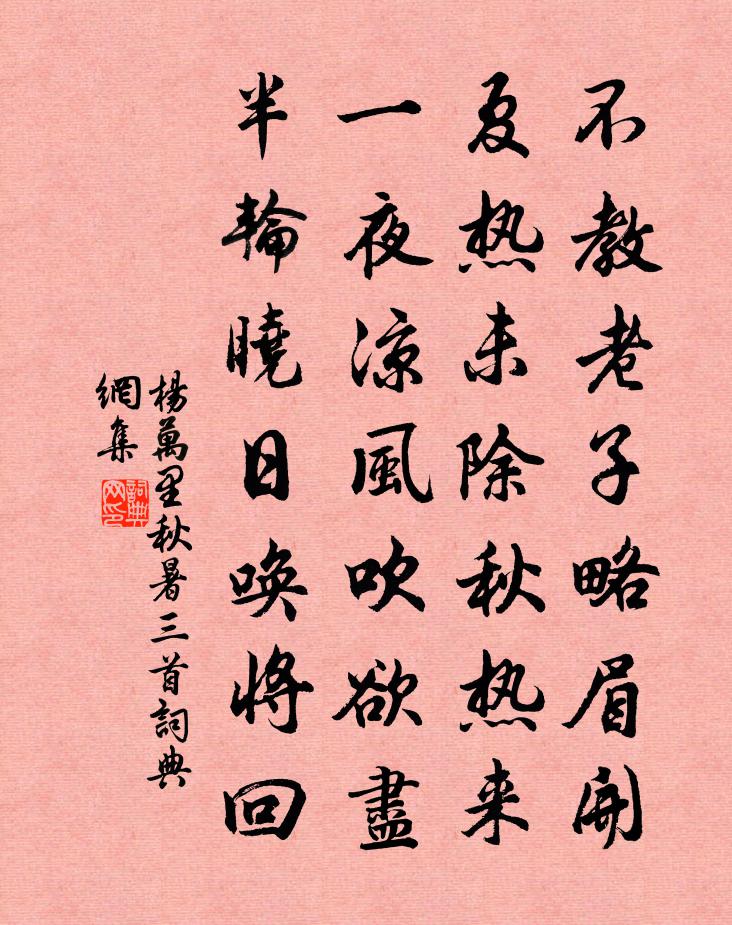 不教老子略眉開
夏热未除秋热来
一夜凉風吹欲盡
半輪曉日唤將回
楊萬里秋暑三首詞典
網集
詞典
网印